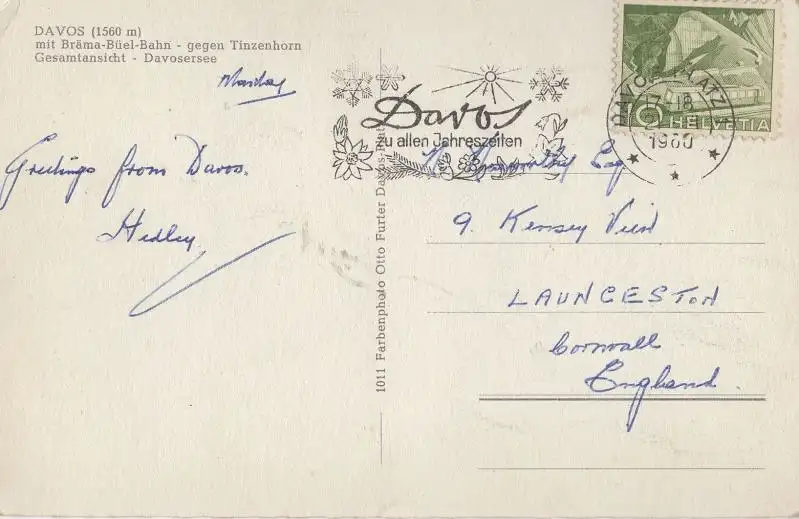 DAVOS (1560 m)
mit Bräma-Büel-Bahn - gegen Tinzenhorn
Gesamtansicht - Davosersee
Monday
Greetings from Davos.
Hedley
1011 Farbenphoto Otto Furter Davos-Platz
Davos
zu allen Jahreszeiten
DAVOS PLATZ 1
17-18
1960
HELVETIA
Esq
9. Kensey View
LAUNCESTON
Cornwall
England.